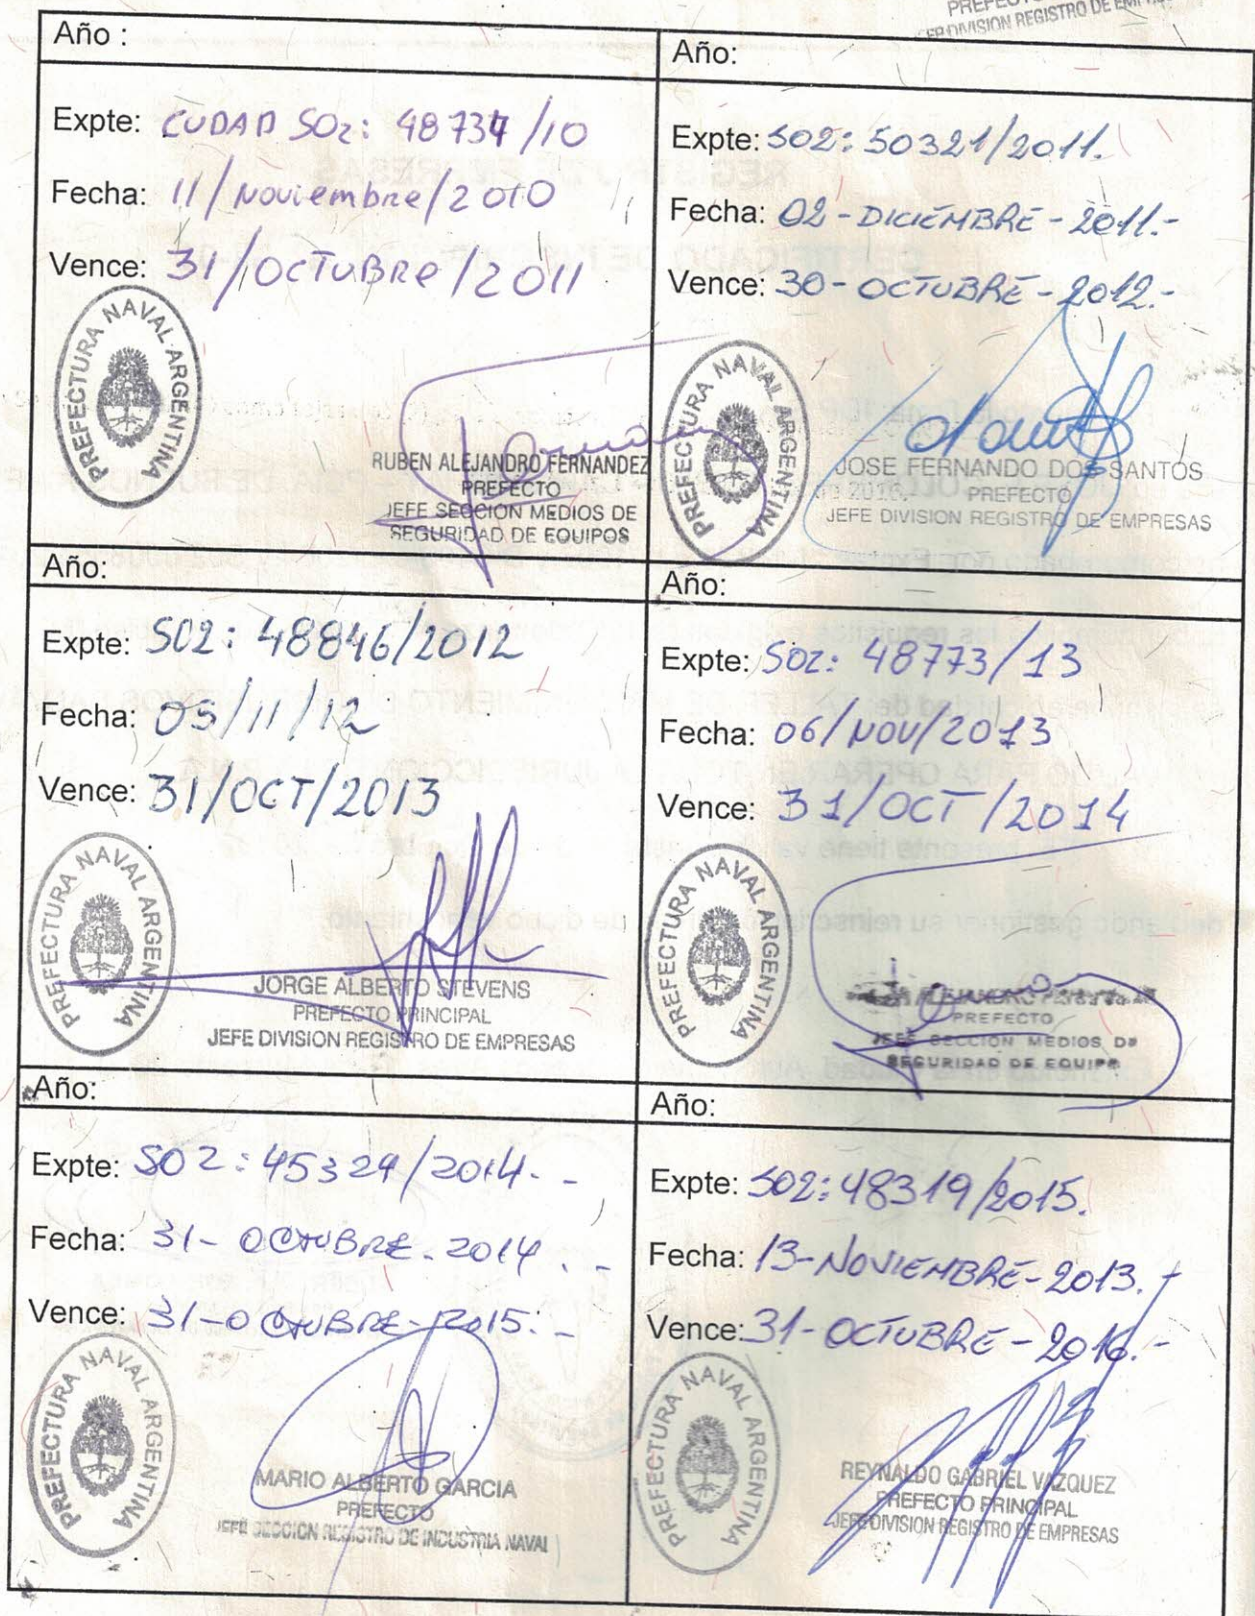 JEFE DIVISION REGISTRO DE
Año :
Expte: CUDAD SO2: 48734/10
Fecha: 11/Noviembre/2010
Vence: 31/OCTUBRE/2011
PREFECTURA NAVAL ARGENTINA
RUBEN ALEJANDRO FERNANDEZ
PREFECTO
JEFE SECCION MEDIOS DE
SEGURIDAD DE EQUIPOS
Año:
Expte: S02: 50321/2011.
Fecha: 02-DICIEMBRE-2011.-
Vence: 30-OCTUBRE-2012.-
PREFECTURA NAVAL ARGENTINA
JOSE FERNANDO DOS SANTOS
PREFECTO
JEFE DIVISION REGISTRO DE EMPRESAS
Año:
Expte: S02: 48846/2012
Fecha: 05/11/12
Vence: 31/OCT/2013
PREFECTURA NAVAL ARGENTINA
JORGE ALBERTO STEVENS
PREFECTO PRINCIPAL
JEFE DIVISION REGISTRO DE EMPRESAS
Año:
Expte: S02: 48773/13
Fecha: 06/NOV/2013
Vence: 31/OCT/2014
PREFECTURA NAVAL ARGENTINA
ALEJANDRO
PREFECTO
JEFE SECCION MEDIOS DE
SEGURIDAD DE EQUIPO
Año:
Expte: SO2: 45324/2014. -
Fecha: 31-OCTUBRE-2014. -
Vence: 31-OCTUBRE-2015. -
PREFECTURA NAVAL ARGENTINA
MARIO ALBERTO GARCIA
PREFECTO
JEFE SECCION REGISTRO DE INDUSTRIA NAVAL
Año:
Expte: S02: 48319/2015.
Fecha: 13-NOVIEMBRE-2013.-
Vence: 31-OCTUBRE-2016.-
PREFECTURA NAVAL ARGENTINA
REYNALDO GABRIEL VAZQUEZ
PREFECTO PRINCIPAL
JEFE DIVISION REGISTRO DE EMPRESAS